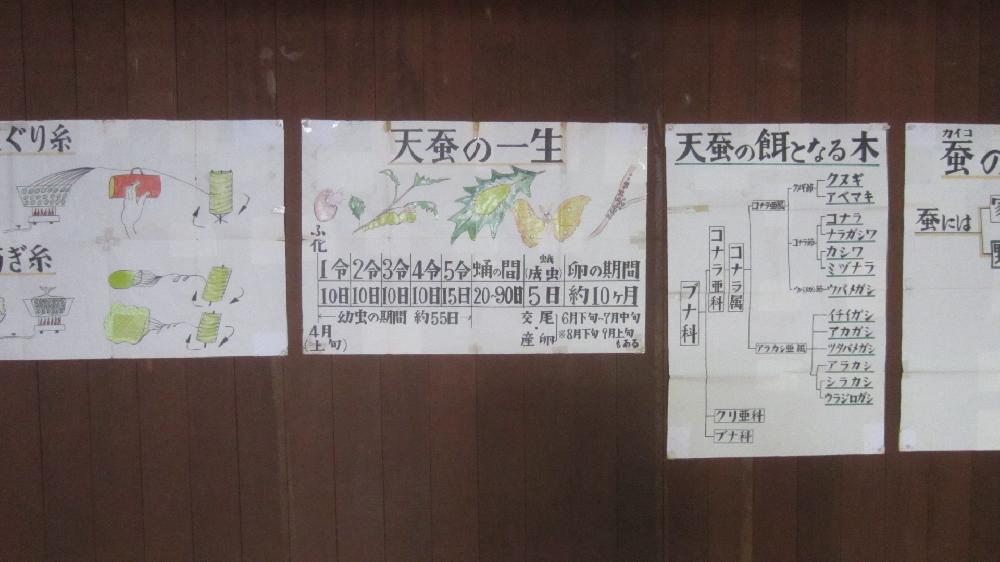 ぐり糸
ぎ糸
天蚕の一生
ふ化
1令 2令 3令 4令 5令 蛹の間 蛾(成虫) 卵の期間
10日 10日 10日 10日 15日 20~90日 5日 約10ヶ月
幼虫の期間 約55日
4月(上旬)
交尾・産卵
6月下旬~7月中旬
※8月下旬 9月上旬もある
天蚕の餌となる木
ブナ科
コナラ亜科
コナラ属
コナラ亜属
クヌギ
アベマキ
コナラ
ナラガシワ
カシワ
ミヅナラ
ウバメガシ
アラカシ亜属
イチイガシ
アカガシ
ツクバメガシ
アラカシ
シラカシ
ウラジロガシ
クリ亜科
ブナ科
カイコ
蚕の
蚕には